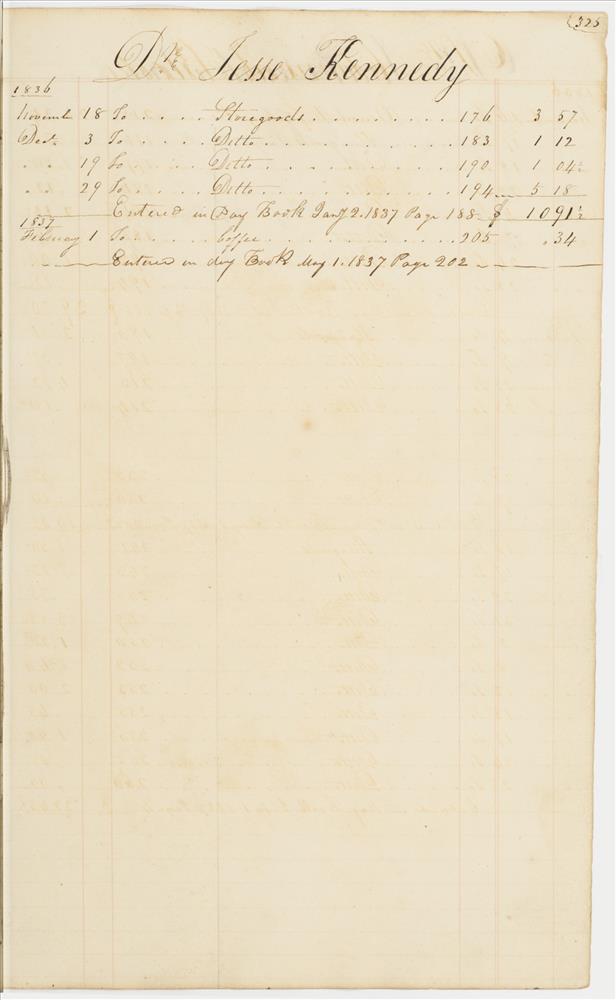 325
Dr. Jesse Kennedy
1836
November 18 To . . . . Storegoods . . . . . . . . 176 3 57
Dect. 3 To . . . . Ditto . . . . . . . . 183 1 12
" " 19 To . . . . Ditto . . . . . . . . 190 1 04½
" " 29 To . . . . Ditto . . . . . . . . 194 5 18
Entered in Day Book Jany 2. 1837 Page 188 $ 10 91½
1837
February 1 To . . . . Coffee . . . . . . . . 205 " 34
Entered in day Book May 1. 1837 Page 202